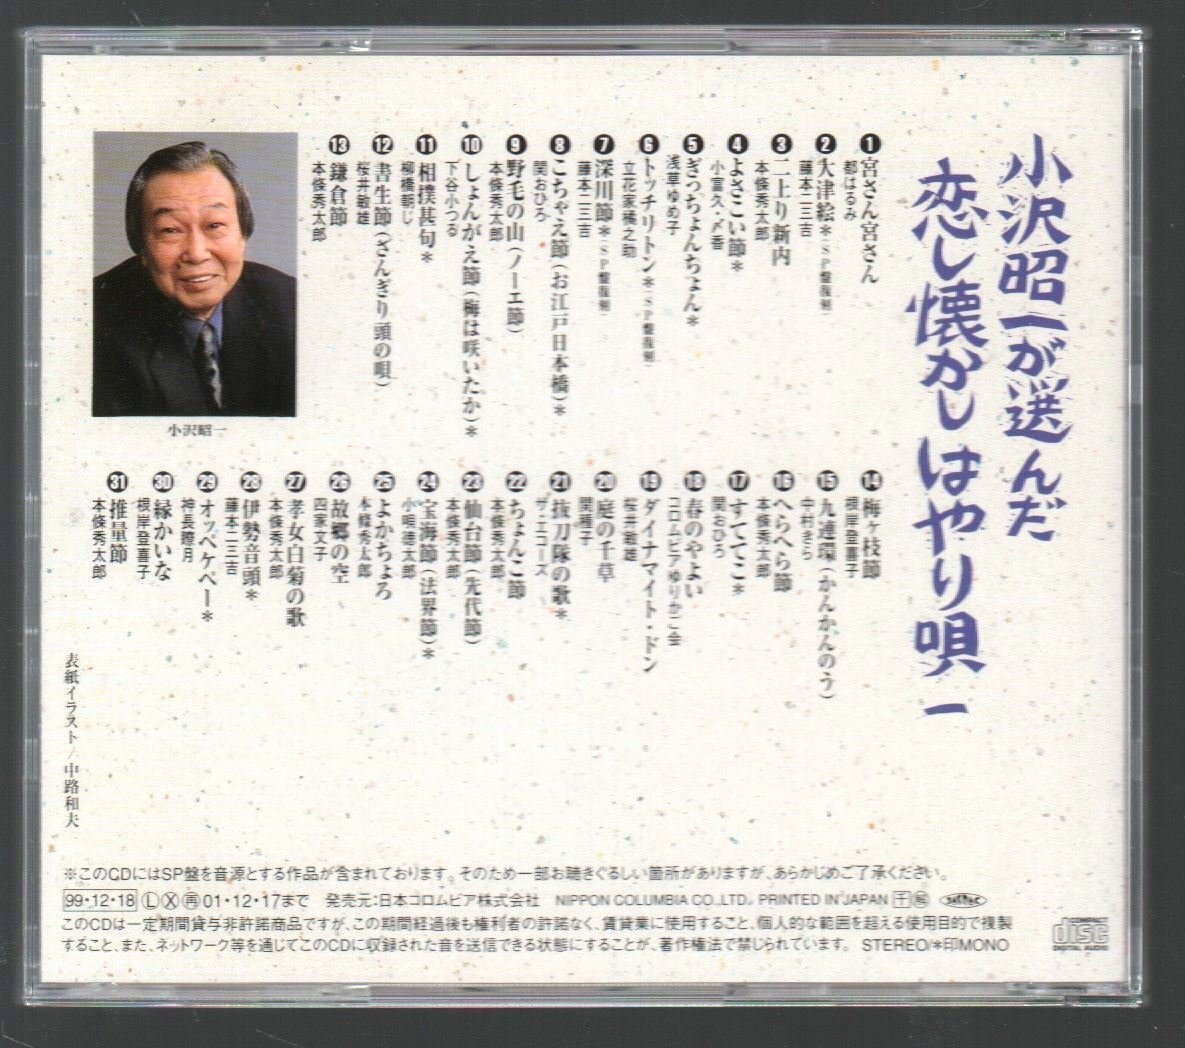 小沢昭一が選んだ
恋し懐かしはやり唄 一
❶宮さん宮さん
都はるみ
❷大津絵*(SP盤復刻)
藤本二三吉
❸二上り新内
本條秀太郎
❹よさこい節*
小富久・〆香
❺ぎっちょんちょん*
浅草ゆめ子
❻トッチリトン*(SP盤復刻)
立花家橘之助
❼深川節*(SP盤復刻)
藤本二三吉
❽こちゃえ節(お江戸日本橋)*
関おひろ
❾野毛の山(ノーエ節)
本條秀太郎
❿しょんがえ節(梅は咲いたか)*
下谷小つる
⓫相撲甚句*
柳橋朝じ
⓬書生節(ざんぎり頭の唄)
桜井敏雄
⓭鎌倉節
本條秀太郎
小沢昭一
⓮梅ヶ枝節
根岸登喜子
⓯九連環(かんかんのう)
中村きら
⓰へらへら節
本條秀太郎
⓱すててこ*
関おひろ
⓲春のやよい
コロムビアゆりかご会
⓳ダイナマイト・ドン
桜井敏雄
⓴庭の千草
関種子
㉑抜刀隊の歌*
ザ・エコーズ
㉒ちょんこ節
本條秀太郎
㉓仙台節(先代節)
本條秀太郎
㉔宝海節(法界節)*
小唄徳太郎
㉕よかちょろ
本條秀太郎
㉖故郷の空
四家文子
㉗孝女白菊の歌
本條秀太郎
㉘伊勢音頭*
藤本二三吉
㉙オッペケペー*
神長瞭月
㉚縁かいな
根岸登喜子
㉛推量節
本條秀太郎
表紙イラスト/中路和夫
※このCDにはSP盤を音源とする作品が含まれております。そのため一部お聴きぐるしい箇所がありますが、あらかじめご了承ください。
99・12・18 Ⓛ Ⓧ 再 01・12・17まで 発売元:日本コロムビア株式会社 NIPPON COLUMBIA CO.,LTD. PRINTED IN JAPAN
このCDは一定期間貸与非許諾商品ですが、この期間経過後も権利者の許諾なく、賃貸業に使用すること、個人的な範囲を超える使用目的で複製
すること、また、ネットワーク等を通じてこのCDに収録された音を送信できる状態にすることが、著作権法で禁じられています。 STEREO/*印MONO
COMPACT
disc
DIGITAL AUDIO